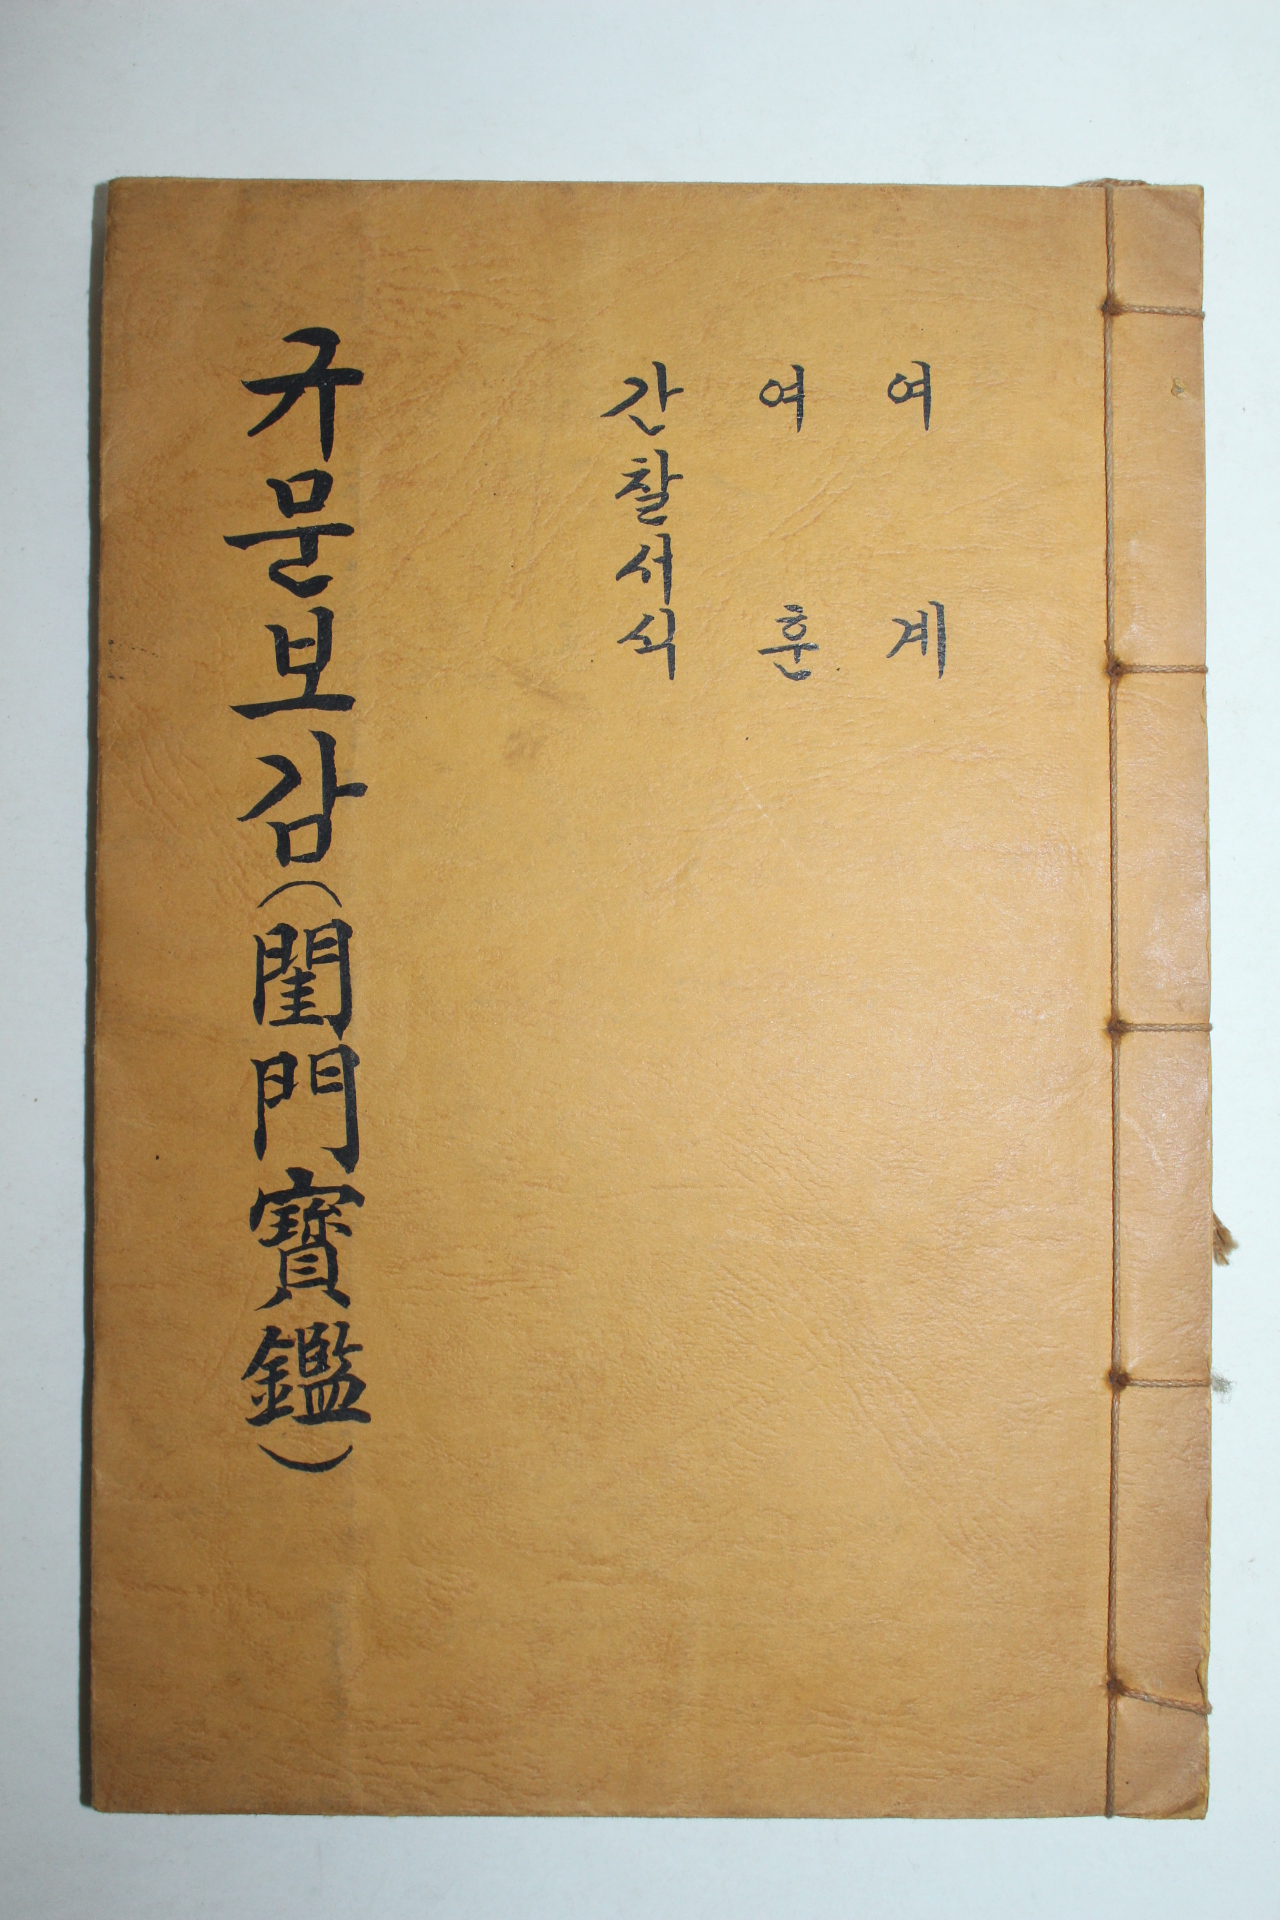 여계
여훈
간찰서식
규문보감(閨門寶鑑)